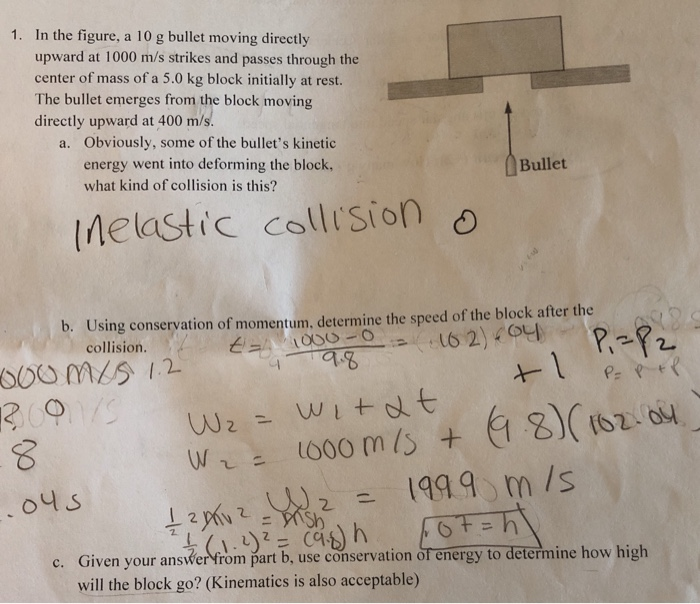 1. In the figure, a 10 g bullet moving directly
upward at 1000 m/s strikes and passes through the
center of mass of a 5.0 kg block initially at rest.
The bullet emerges from the block moving
directly upward at 400 m/s.
a. Obviously, some of the bullet's kinetic
energy went into deforming the block,
what kind of collision is this?
Bullet
Inelastic collision
b. Using conservation of momentum, determine the speed of the block after the
collision.
t = 1000-0 / 9.8 =
P₁=P₂
+1
000 m/s 1.2
W₂ = W₁+αt
8
W₂ = 1000 m/s + (9.8)(102.04
.04s
W₂ = 1999 m/s
(1.2)² = (9.8)h
.07=h
c. Given your answer from part b, use conservation of energy to determine how high
will the block go? (Kinematics is also acceptable)